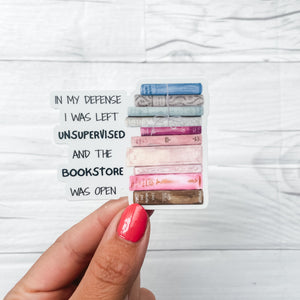 IN MY DEFENSE
I WAS LEFT
UNSUPERVISED
AND THE
BOOKSTORE
WAS OPEN